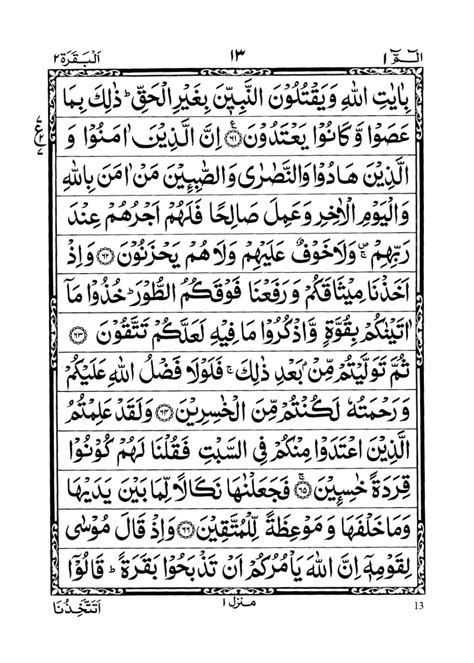 الٓمّٓ ١ ١٣ اَلْبَقَرَة ٢
بِاٰيٰتِ اللّٰهِ وَيَقْتُلُوْنَ النَّبِيّٖنَ بِغَيْرِ الْحَقِّ ؕ ذٰلِكَ بِمَا
عَصَوْا وَّكَانُوْا يَعْتَدُوْنَ ﴿٦١﴾ اِنَّ الَّذِيْنَ اٰمَنُوْا وَ
الَّذِيْنَ هَادُوْا وَالنَّصٰرٰى وَالصّٰبِـِٕيْنَ مَنْ اٰمَنَ بِاللّٰهِ
وَالْيَوْمِ الْاٰخِرِ وَعَمِلَ صَالِحًا فَلَهُمْ اَجْرُهُمْ عِنْدَ
رَبِّهِمْ ۚ وَلَا خَوْفٌ عَلَيْهِمْ وَلَا هُمْ يَحْزَنُوْنَ ﴿٦٢﴾ وَاِذْ
اَخَذْنَا مِيْثَاقَكُمْ وَرَفَعْنَا فَوْقَكُمُ الطُّوْرَ ؕ خُذُوْا مَاۤ
اٰتَيْنٰكُمْ بِقُوَّةٍ وَّاذْكُرُوْا مَا فِيْهِ لَعَلَّكُمْ تَتَّقُوْنَ ﴿٦٣﴾
ثُمَّ تَوَلَّيْتُمْ مِّنْۢ بَعْدِ ذٰلِكَ ۚ فَلَوْلَا فَضْلُ اللّٰهِ عَلَيْكُمْ
وَرَحْمَتُهٗ لَكُنْتُمْ مِّنَ الْخٰسِرِيْنَ ﴿٦٤﴾ وَلَقَدْ عَلِمْتُمُ
الَّذِيْنَ اعْتَدَوْا مِنْكُمْ فِى السَّبْتِ فَقُلْنَا لَهُمْ كُوْنُوْا
قِرَدَةً خٰسِـِٕيْنَ ۚ﴿٦٥﴾ فَجَعَلْنٰهَا نَكَالًا لِّمَا بَيْنَ يَدَيْهَا
وَمَا خَلْفَهَا وَمَوْعِظَةً لِّلْمُتَّقِيْنَ ﴿٦٦﴾ وَاِذْ قَالَ مُوْسٰى
لِقَوْمِهٖۤ اِنَّ اللّٰهَ يَاْمُرُكُمْ اَنْ تَذْبَحُوْا بَقَرَةً ؕ قَالُوْۤا
اَتَتَّخِذُنَا منزل ١ 13